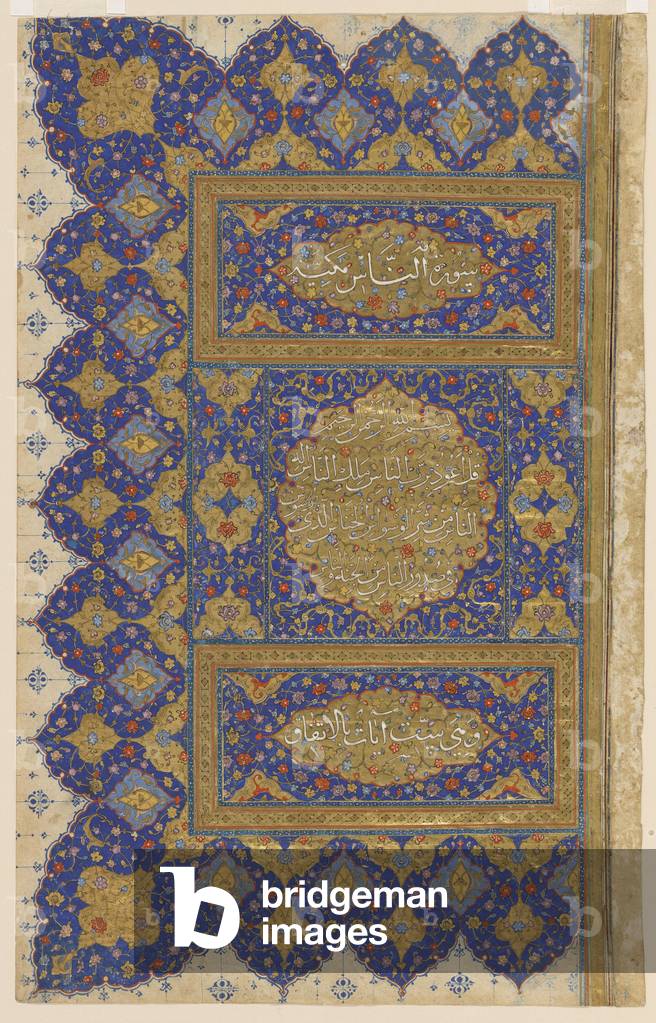 سورة الناس مكية
بسم الله الرحمن الرحيم
قل اعوذ برب الناس ملك الناس اله
الناس من شر الوسواس الخناس الذى يوسوس
فى صدور الناس من الجنة و
وهي ست آيات بالاتفاق
bridgeman
images